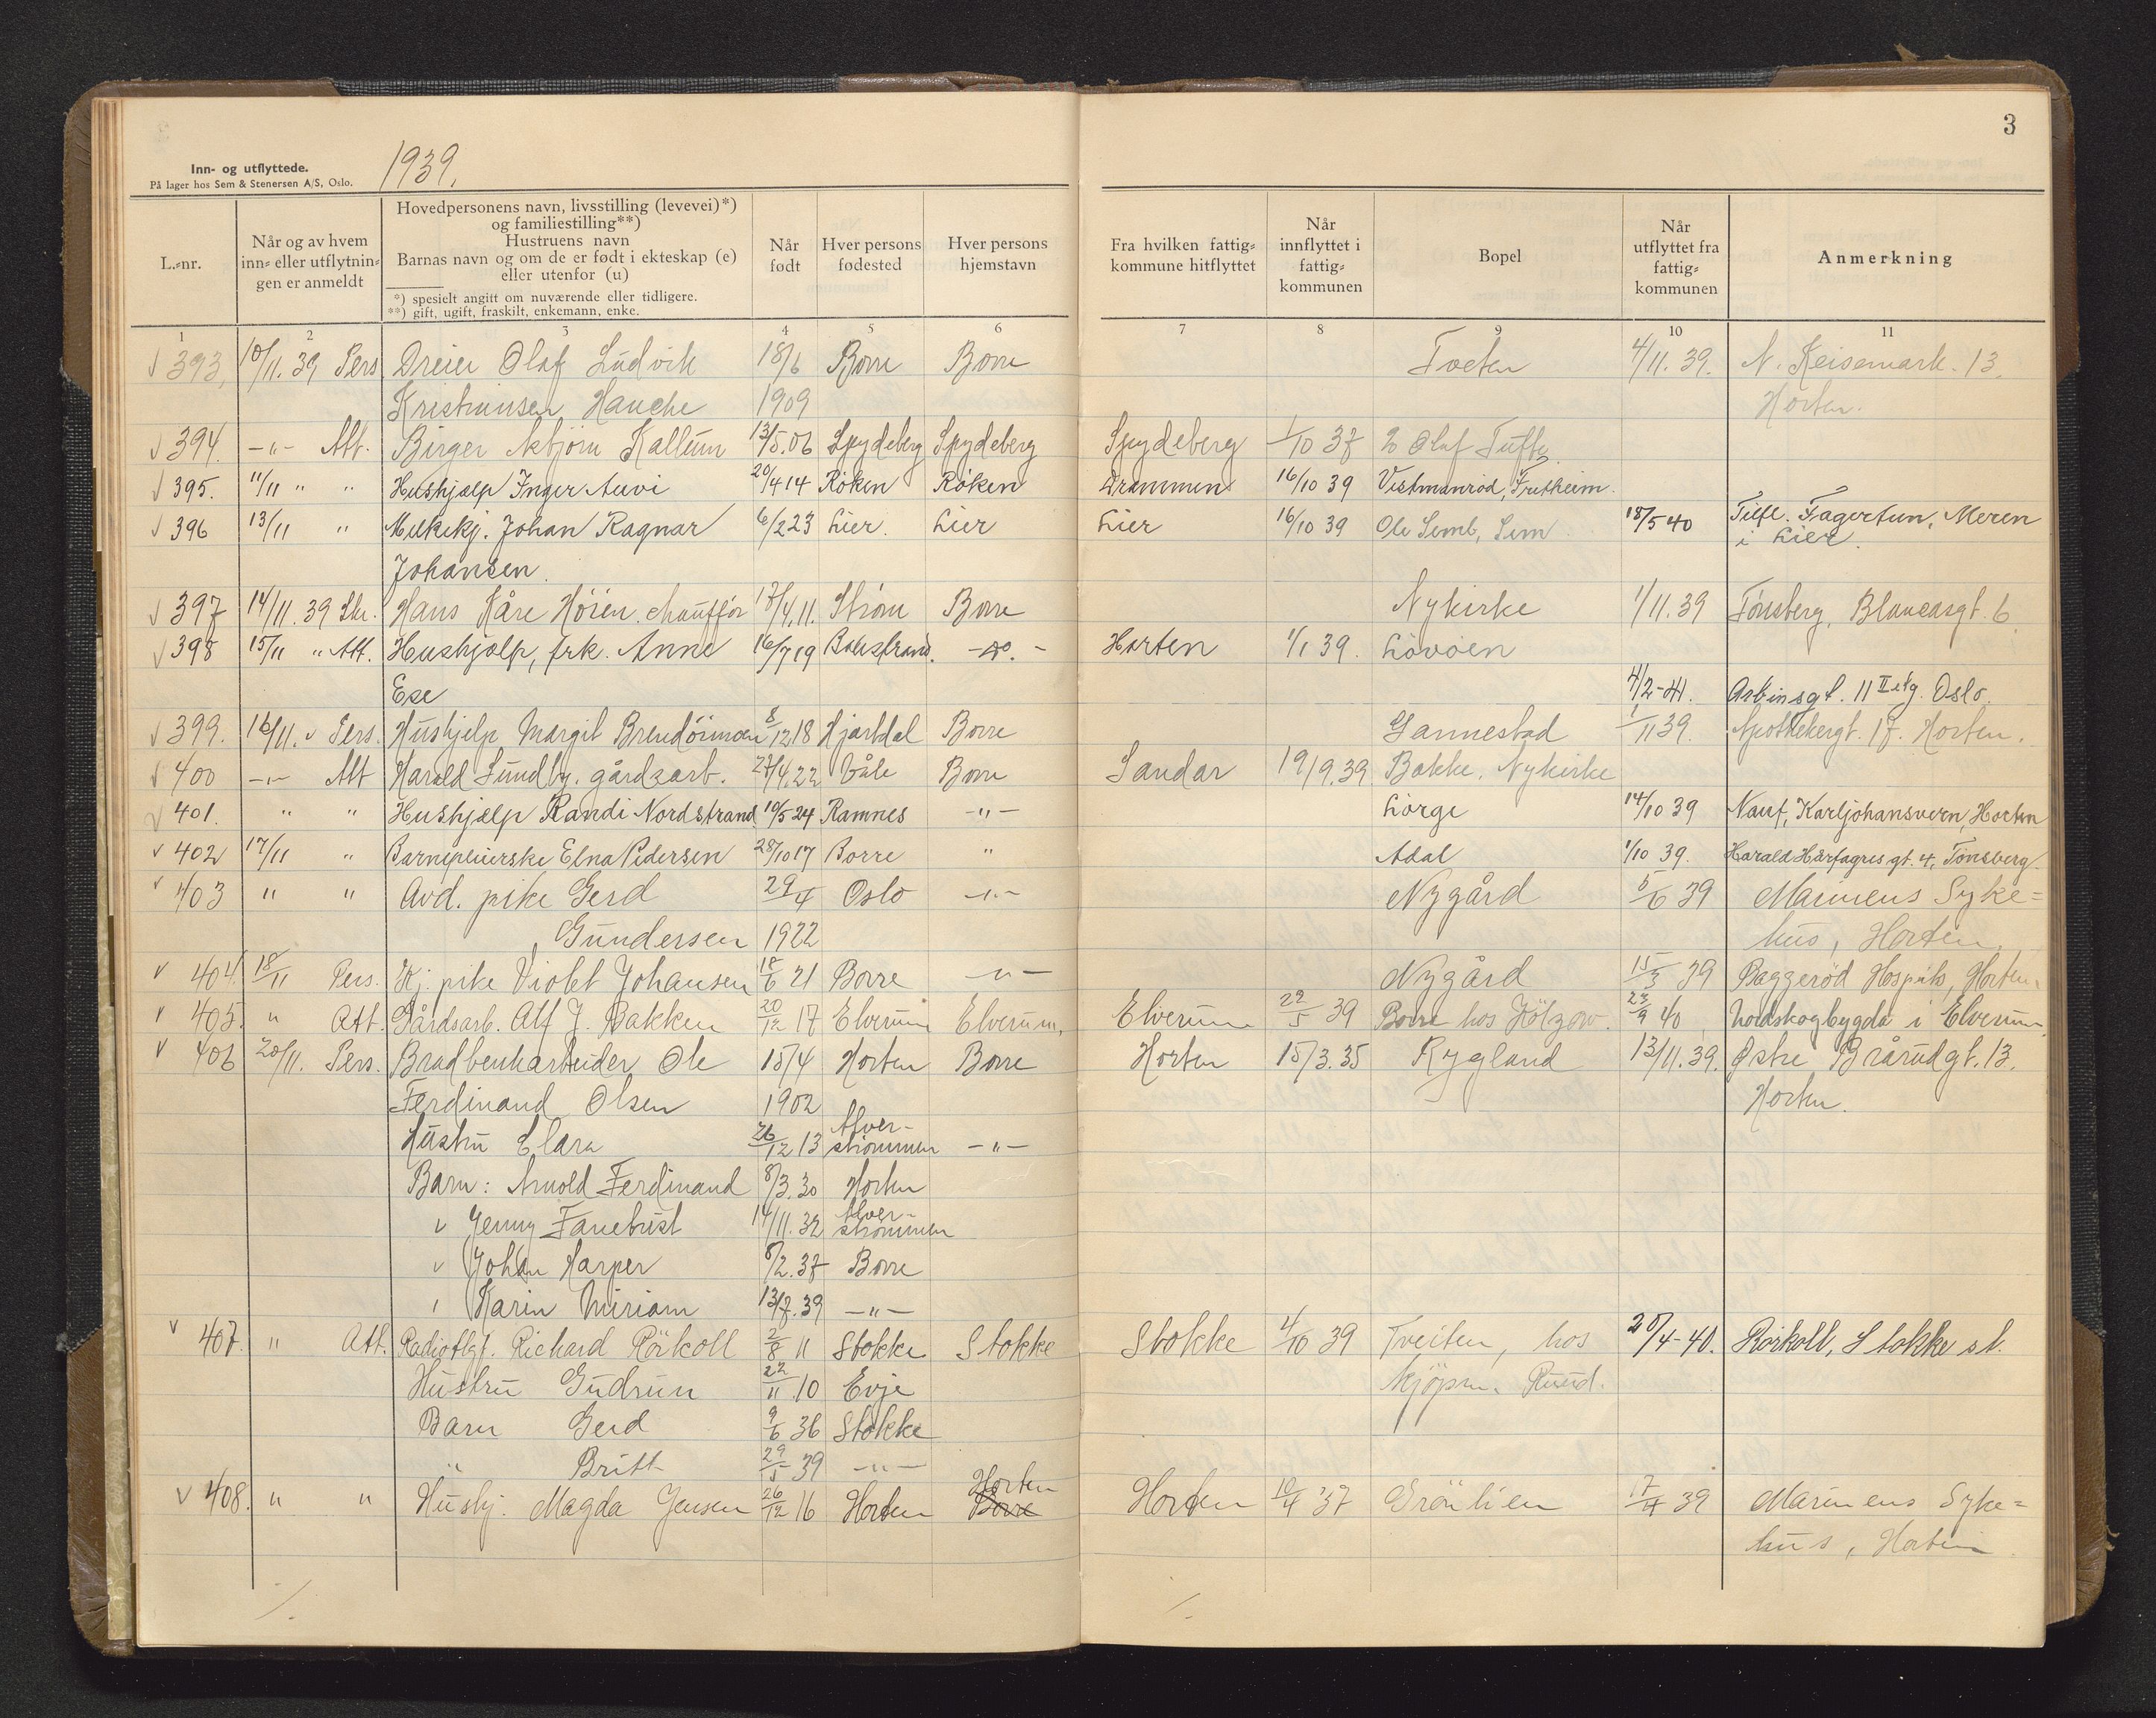 3
Inn- og utflyttede.
På lager hos Sem & Stenersen A/S, Oslo.
1939.
L.-nr.
Når og av hvem
inn- eller utflytnin-
gen er anmeldt
Hovedpersonens navn, livsstilling (levevei)*)
og familiestilling**)
Hustruens navn
Barnas navn og om de er født i ekteskap (e)
eller utenfor (u)
*) spesielt angitt om nuværende eller tidligere.
**) gift, ugift, fraskilt, enkemann, enke.
Når
født
Hver persons
fødested
Hver persons
hjemstavn
Fra hvilken fattig-
kommune hitflyttet
Når
innflyttet i
fattig-
kommunen
Bopel
Når
utflyttet fra
fattig-
kommunen
Anmerkning
1 2 3 4 5 6 7 8 9 10 11
393, 10/11. 39 Pers Dreier Olaf Ludvik 18/6 Borre Borre Tveten 4/11. 39. N. Keisemark. 13.
Kristiansen Hauche 1909 Horten.
394. -"- Att. Birger Asbjørn Kallum 13/5.06 Spydeberg Spydeberg Spydeberg 1/10 37 Olaf Tufte
395. 11/11 " " Hushjælp Inger Auvi 20/4 14 Röken Röken Drammen 16/10 39 Vestmanröd, Fritheim.
396 13/11 " Melkekj. Johan Ragnar 6/2 23 Lier. Lier Lier 16/10 39 Ole Semb, Sem 18/5 40 Tilfl. Fagertun, Meren
i Lier.
Johansen.
397 14/11. 39 Skr. Hans Kåre Höien. chaufför 17/4.11. Ström Borre Nykirke 1/11.39 Tönsberg, Blancasgt. 6.
398 15/11 " Att. Hushjælp, frk. Anne 16/7 19 Balestrand. -do.- Horten 1/1 39. Lövöen
Ese 4/2-41. Arbinsgt. 11 II etg. Oslo.
399. 16/11. " Pers. Hushjelp Margit Brendöimoen 8/12 18 Hjartdal Borre Gannestad 1/11 39. Apothekergt. 17. Horten.
400 -"- Att Harald Lundby. gårdsarb. 27/4.22 Våle Borre Sandar 19/9.39 Bakke. Nykirke
401. " " Hushjælp Randi Nordstrand 10/5 24 Ramnes -"- Lörge 14/10 39 Nauf, Karljohansvern, Horten
402 17/11 " Barnepleierske Elna Pedersen 28/10 17 Borre " Adal 1/10 39. Harald Hårfagres gt. 4, Tönsberg.
403 " " Avd. pike Gerd 29/4 Oslo -"- Nygård 5/6 39 Marinens Syke=
Gundersen 1922 hus, Horten.
404. 18/11 Pers. Kj. pike Violet Johansen 18/6 21 Borre -"- Nygård 15/3 39 Baggeröd Hospits, Horten.
405. " Att. Gårdsarb. Alf J. Bakken 20/12 17 Elverum Elverum. Elverum 22/5 39 Borre hos Hölzow. 23/9 40 Nordskogbygda i Elverum.
406 20/11. Pers. Bradbenkarbeider Ole 15/4 Horten Borre Horten 15/3.35 Rygland 13/11.39. Østre Brårudgt. 13.
Ferdinand Olsen 1902 Horten.
Hustru Clara 26/12 13 Alver-
strömmen -"-
Barn: Arnold Ferdinand 8/3.30 Horten
" Jenny Fanebust 14/11.32 Alver-
strömmen
" Johan Harper 8/2.37 Borre
" Karin Miriam 13/7.39 -"-
407. " Att. Radiotlgf. Richard Rörkoll 2/8 11 Stokke Stokke Stokke 4/10 39 Tveiten, hos 20/4-40. Rörkoll, Stokke st.
Hustru Gudrun 22/11.10 Evje kjöpm. Ruud.
Barn Gerd 9/6 36 Stokke
" Britt 29/5 39 -"-
Horten
408. " " Hushj. Magda Jensen 26/12 16 Horten Borre Horten 10/4 '37 Grönlien 17/4 39 Marinens Syke=
hus, Horten